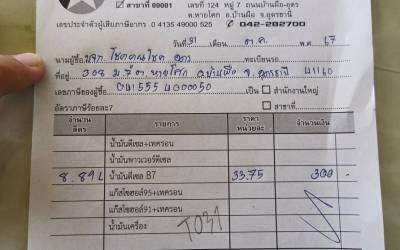 สาขาที่ 00001 เลขที่ 124 หมู่ 7 ถนนบ้านผือ-อุดร
ต.หายโศก อ.บ้านผือ จ.อุดรธานี
เลขประจำตัวผู้เสียภาษีอากร 0 4135 49000 525 042-282700
วันที่ 31 เดือน ต.ค. พ.ศ. 67
นามผู้ซื้อ บจก. โชคคูณโชค อุดร ทะเบียนรถ
ที่อยู่ 308 ม.5 ต.หายโศก อ.บ้านผือ จ.อุดรธานี 41160
เลขภาษีของผู้ซื้อ 0415554000050 เป็น สำนักงานใหญ่
อัตราภาษีร้อยละ7 เป็น สาขาที่
จำนวนลิตร รายการ ราคาหน่วยละ จำนวนเงิน
น้ำมันดีเซล+เทครอน
น้ำมันพาวเวอร์ดีเซล
8.89L น้ำมันดีเซล B7 33.75 300
แก๊สโซฮอล์95+เทครอน
แก๊สโซฮอล์91+เทครอน
น้ำมันเครื่อง
T031